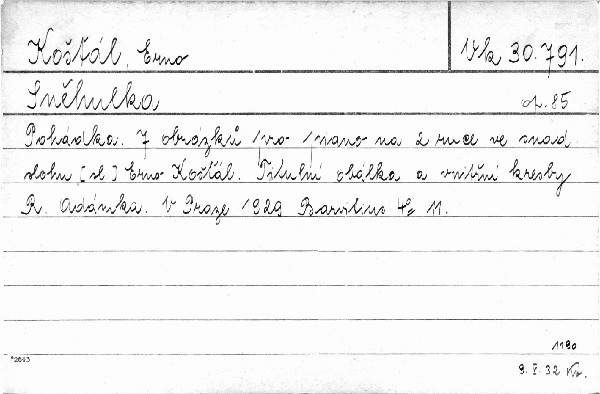 Košťál, Erno Vk 30.791.
Sněhulka op. 85
Pohádka. 7 obrázků pro piano na 2 ruce ve snad.
slohu [sl.] Erno Košťál. Titulní obálka a vnitřní kresby
R. Adámka. V Praze 1929 Barvitius 4° 11.
1190
*2643
9. I. 32 Kr.